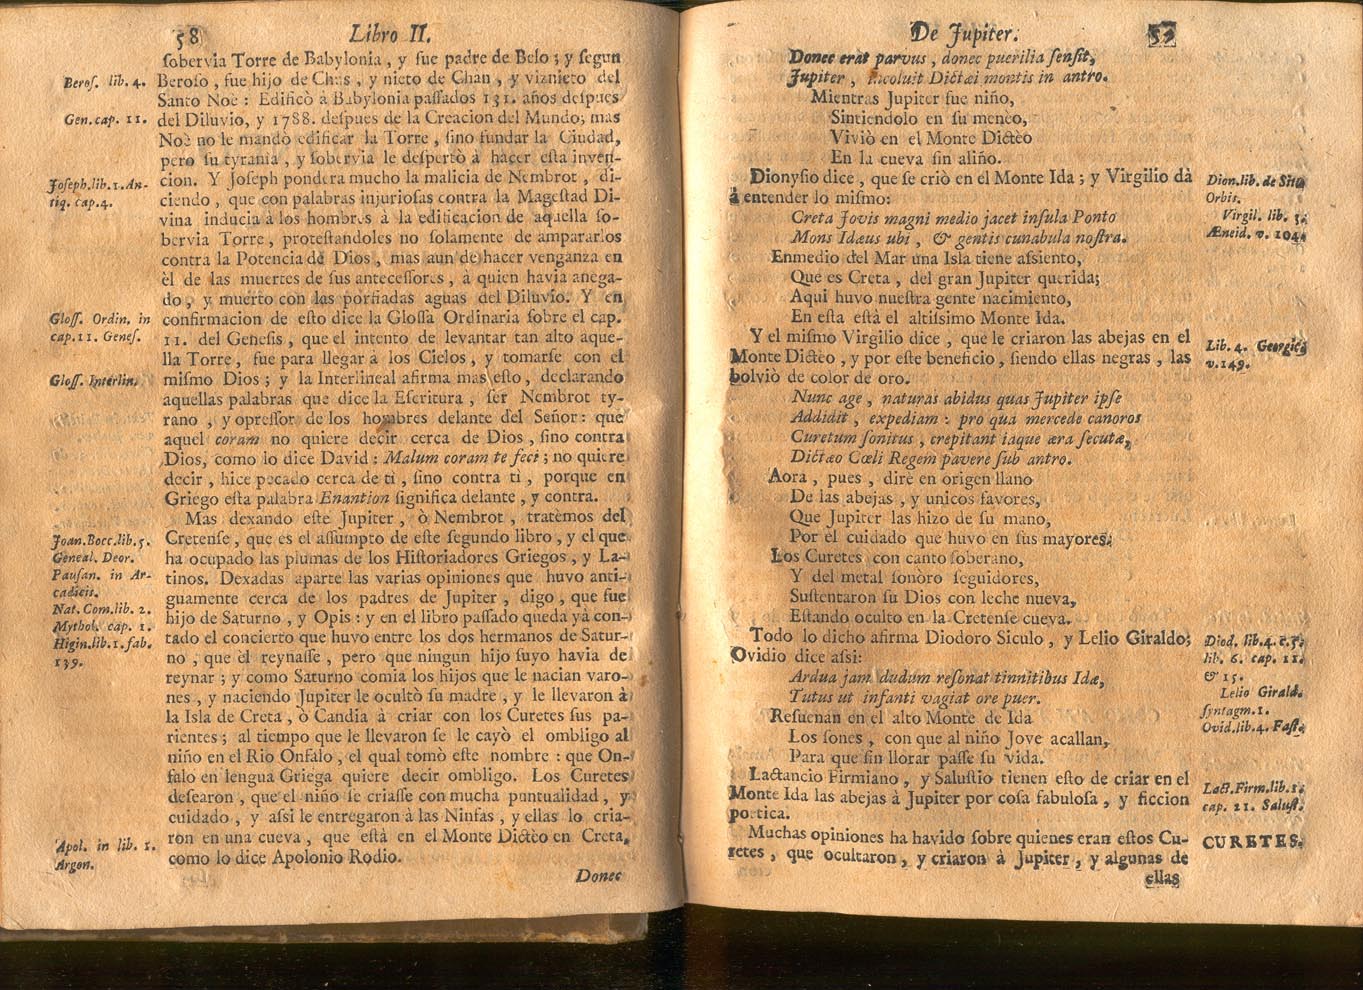 58 Libro II.
sobervia Torre de Babylonia, y fue padre de Belo; y segun
Beros. lib. 4.
Beroso, fue hijo de Chus, y nieto de Chan, y viznieto del
Santo Noè: Edificò à Babylonia passados 131. años despues
Gen. cap. 11.
del Diluvio, y 1788. despues de la Creacion del Mundo; mas
Noè no le mandò edificar la Torre, sino fundar la Ciudad,
pero su tyrania, y sobervia le despertò à hacer esta inven-
Joseph. lib. 1. An-
tiq. cap. 4.
cion. Y Joseph pondera mucho la malicia de Nembrot, di-
ciendo, que con palabras injuriosas contra la Magestad Di-
vina inducia à los hombres à la edificacion de aquella so-
bervia Torre, protestandoles no solamente de ampararlos
contra la Potencia de Dios, mas aun de hacer venganza en
èl de las muertes de sus antecessores, à quien havia anega-
do, y muerto con las porfiadas aguas del Diluvio. Y en
Gloss. Ordin. in
cap. 11. Genes.
confirmacion de esto dice la Glossa Ordinaria sobre el cap.
11. del Genesis, que el intento de levantar tan alto aque-
lla Torre, fue para llegar à los Cielos, y tomarse con el
Gloss. Interlin.
mismo Dios; y la Interlineal afirma mas esto, declarando
aquellas palabras que dice la Escritura, ser Nembrot ty-
rano, y opressor de los hombres delante del Señor: que
aquel coram no quiere decir cerca de Dios, sino contra
Dios, como lo dice David: Malum coram te feci; no quiere
decir, hice pecado cerca de ti, sino contra ti, porque en
Griego esta palabra Enantion significa delante, y contra.
Mas dexando este Jupiter, ò Nembrot, tratèmos del
Joan. Bocc. lib. 5.
Geneal. Deor.
Pausan. in Ar-
cadicis.
Nat. Com. lib. 2.
Mythol. cap. 1.
Higin. lib. 1. fab.
139.
Cretense, que es el assumpto de este segundo libro, y el que
ha ocupado las plumas de los Historiadores Griegos, y La-
tinos. Dexadas aparte las varias opiniones que huvo anti-
guamente cerca de los padres de Jupiter, digo, que fue
hijo de Saturno, y Opis: y en el libro passado queda yà con-
tado el concierto que huvo entre los dos hermanos de Satur-
no, que èl reynasse, pero que ningun hijo suyo havia de
reynar; y como Saturno comia los hijos que le nacian varo-
nes, y naciendo Jupiter le ocultò su madre, y le llevaron à
la Isla de Creta, ò Candia à criar con los Curetes sus pa-
rientes; al tiempo que le llevaron se le cayò el ombligo al
niño en el Rio Onfalo, el qual tomò este nombre: que On-
falo en lengua Griega quiere decir ombligo. Los Curetes
desearon, que el niño se criasse con mucha puntualidad, y
cuidado, y assi le entregaron à las Ninfas, y ellas lo cria-
Apol. in lib. 1.
Argon.
ron en una cueva, que està en el Monte Dictèo en Creta,
como lo dice Apolonio Rodio.
Donec
De Jupiter. 59
Donec erat parvus, donec puerilia sensit,
Jupiter, incoluit Dictæi montis in antro.
Mientras Jupiter fue niño,
Sintiendolo en su menèo,
Viviò en el Monte Dictèo
En la cueva sin aliño.
Dion. lib. de Situ
Orbis.
Virgil. lib. 3.
Æneid. v. 104.
Dionysio dice, que se criò en el Monte Ida; y Virgilio dà
à entender lo mismo:
Creta Jovis magni medio jacet insula Ponto
Mons Idæus ubi, & gentis cunabula nostra.
Enmedio del Mar una Isla tiene assiento,
Que es Creta, del gran Jupiter querida;
Aqui huvo nuestra gente nacimiento,
En esta està el altissimo Monte Ida.
Lib. 4. Georgic.
v. 149.
Y el mismo Virgilio dice, que le criaron las abejas en el
Monte Dictèo, y por este beneficio, siendo ellas negras, las
bolviò de color de oro.
Nunc age, naturas abidus quas Jupiter ipse
Addidit, expediam: pro qua mercede canoros
Curetum sonitus, crepitant iaque æra secutæ,
Dictæo Cœli Regem pavere sub antro.
Aora, pues, dirè en origen llano
De las abejas, y unicos favores,
Que Jupiter las hizo de su mano,
Por el cuidado que huvo en sus mayores:
Los Curetes con canto soberano,
Y del metal sonòro seguidores,
Sustentaron su Dios con leche nueva,
Estando oculto en la Cretense cueva.
Diod. lib. 4. c. 5.
lib. 6. cap. 11.
& 15.
Lelio Girald.
syntagm. 1.
Ovid. lib. 4. Fast.
Todo lo dicho afirma Diodoro Siculo, y Lelio Giraldo;
Ovidio dice assi:
Ardua jam dudum resonat tinnitibus Ida,
Tutus ut infanti vagiat ore puer.
Resuenan en el alto Monte de Ida
Los sones, con que al niño Jove acallan,
Para que sin llorar passe su vida.
Lact. Firm. lib. 1.
cap. 21. Salust.
Lactancio Firmiano, y Salustio tienen esto de criar en el
Monte Ida las abejas à Jupiter por cosa fabulosa, y ficcion
poetica.
CURETES.
Muchas opiniones ha havido sobre quienes eran estos Cu-
retes, que ocultaron, y criaron à Jupiter, y algunas de
ellas